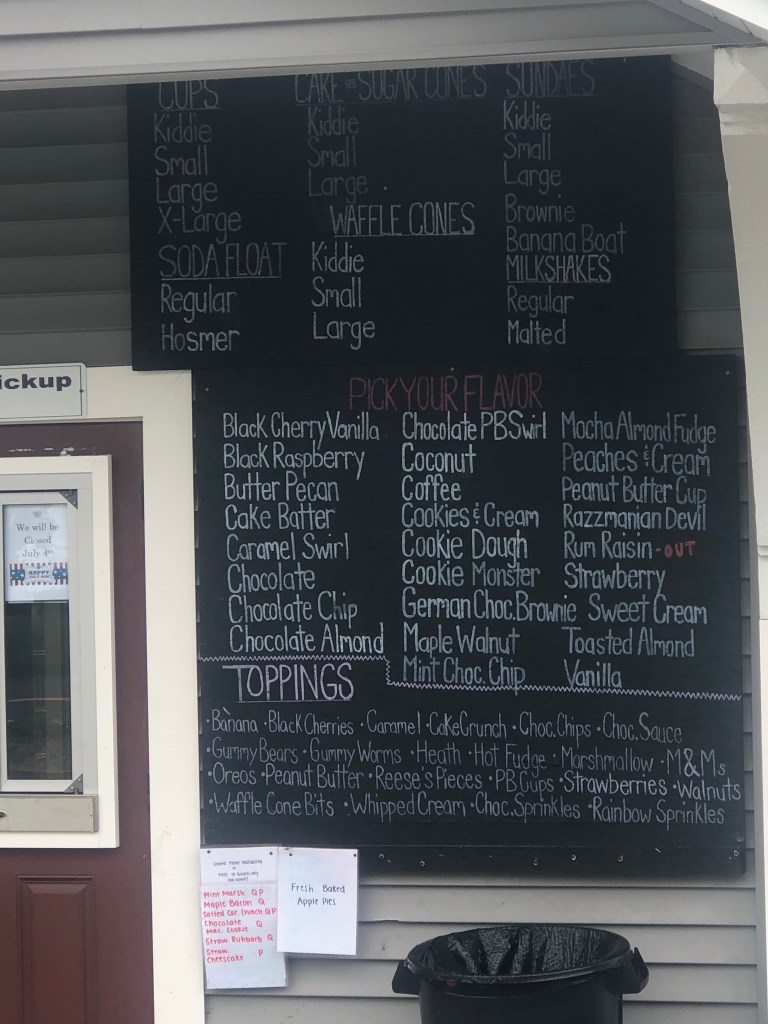 CUPS
Kiddie
Small
Large
X-Large
SODA FLOAT
Regular
Hosmer
CAKE OR SUGAR CONES
Kiddie
Small
Large
WAFFLE CONES
Kiddie
Small
Large
SUNDAES
Kiddie
Small
Large
Brownie
Banana Boat
MILKSHAKES
Regular
Malted
ickup
We will be
Closed
July 4th
HAPPY
PICK YOUR FLAVOR
Black Cherry Vanilla
Black Raspberry
Butter Pecan
Cake Batter
Caramel Swirl
Chocolate
Chocolate Chip
Chocolate Almond
Chocolate PB Swirl
Coconut
Coffee
Cookies & Cream
Cookie Dough
Cookie Monster
German Choc. Brownie
Maple Walnut
Mint Choc. Chip
Mocha Almond Fudge
Peaches & Cream
Peanut Butter Cup
Razzmanian Devil
Rum Raisin - OUT
Strawberry
Sweet Cream
Toasted Almond
Vanilla
TOPPINGS
• Banana • Black Cherries • Caramel • Cake Crunch • Choc. Chips • Choc. Sauce
• Gummy Bears • Gummy Worms • Heath • Hot Fudge • Marshmallow • M&Ms
• Oreos • Peanut Butter • Reese's Pieces • PB Cups • Strawberries • Walnuts
• Waffle Cone Bits • Whipped Cream • Choc. Sprinkles • Rainbow Sprinkles
Mint Marsh Q P
Maple Bacon Q
Salted Car. Crunch Q P
Chocolate Q
Mac. Cookie
Straw. Rhubarb Q
Straw. P
Cheescake
Fresh Baked
Apple Pies